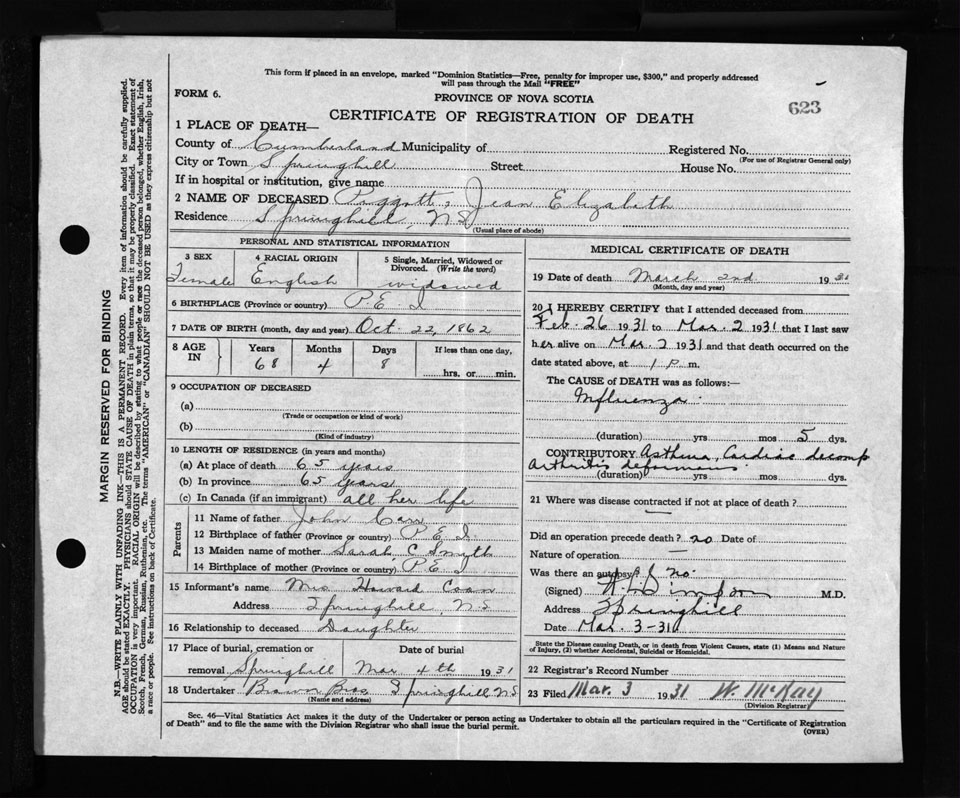 This form if placed in an envelope, marked "Dominion Statistics—Free, penalty for improper use, $300," and properly addressed
will pass through the Mail "FREE"
FORM 6.
PROVINCE OF NOVA SCOTIA
623
CERTIFICATE OF REGISTRATION OF DEATH
1 PLACE OF DEATH—
County of Cumberland Municipality of Registered No.
(For use of Registrar General only)
City or Town Springhill Street House No.
If in hospital or institution, give name
2 NAME OF DECEASED Piggott, Jean Elizabeth
Residence Springhill, N S
(Usual place of abode)
PERSONAL AND STATISTICAL INFORMATION
3 SEX 4 RACIAL ORIGIN 5 Single, Married, Widowed or
Divorced. (Write the word)
Female English widowed
6 BIRTHPLACE (Province or country) P.E.I
7 DATE OF BIRTH (month, day and year) Oct. 22, 1862
8 AGE IN Years Months Days If less than one day,
68 4 8 hrs. or min.
9 OCCUPATION OF DECEASED
(a)
(Trade or occupation or kind of work)
(b)
(Kind of industry)
10 LENGTH OF RESIDENCE (in years and months)
(a) At place of death 65 years
(b) In province 65 years
(c) In Canada (if an immigrant) all her life
Parents
11 Name of father John Carr
12 Birthplace of father (Province or country) P.E.I.
13 Maiden name of mother Sarah C Smyth
14 Birthplace of mother (Province or country) P.E.I
15 Informant's name Mrs Howard Coan
Address Springhill, N.S
16 Relationship to deceased Daughter
17 Place of burial, cremation or Date of burial
removal Springhill Mar 4th 1931
18 Undertaker Brown Bros Springhill N S
(Name and address)
MEDICAL CERTIFICATE OF DEATH
19 Date of death March 2nd 1931
(Month, day and year)
20 I HEREBY CERTIFY that I attended deceased from
Feb. 26 1931 to Mar. 2 1931 that I last saw
her alive on Mar. 2 1931 and that death occurred on the
date stated above, at 1 P. m.
The CAUSE of DEATH was as follows:—
Influenza
(duration) yrs mos 5 dys.
CONTRIBUTORY Asthma, Cardiac decomp
arthritis deformans
(duration) yrs mos dys.
21 Where was disease contracted if not at place of death?
—
Did an operation precede death? no Date of
Nature of operation —
Was there an autopsy? no.
(Signed) Simpson M.D.
Address Springhill
Date Mar. 3-31
State the Disease causing Death, or in death from Violent Causes, state (1) Means and Nature
of Injury, (2) whether Accidental, Suicidal or Homicidal.
22 Registrar's Record Number
23 Filed Mar. 3 1931 W. McKay
(Division Registrar)
Sec. 46—Vital Statistics Act makes it the duty of the Undertaker or person acting as Undertaker to obtain all the particulars required in the "Certificate of Registration
of Death" and to file the same with the Division Registrar who shall issue the burial permit.
(OVER)
MARGIN RESERVED FOR BINDING
N.B.—WRITE PLAINLY WITH UNFADING INK—THIS IS A PERMANENT RECORD. Every item of information should be carefully supplied.
AGE should be stated EXACTLY. PHYSICIANS should STATE CAUSE OF DEATH in plain terms, so that it may be properly classified. Exact statement of
OCCUPATION is very important. RACIAL ORIGIN will be described by stating to what people or race the deceased person belonged, whether English, Irish,
Scotch, French, German, Russian, Ruthenian, etc. The terms "AMERICAN" or "CANADIAN" SHOULD NOT BE USED as they express citizenship but not
a race or people. See instructions on back of Certificate.